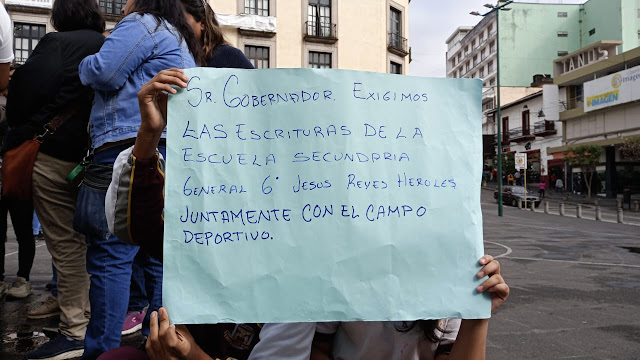 Sr. Gobernador. Exigimos
las Escrituras de la
Escuela Secundaria
General 6° Jesus Reyes Heroles
Juntamente con el campo
deportivo.
imagen